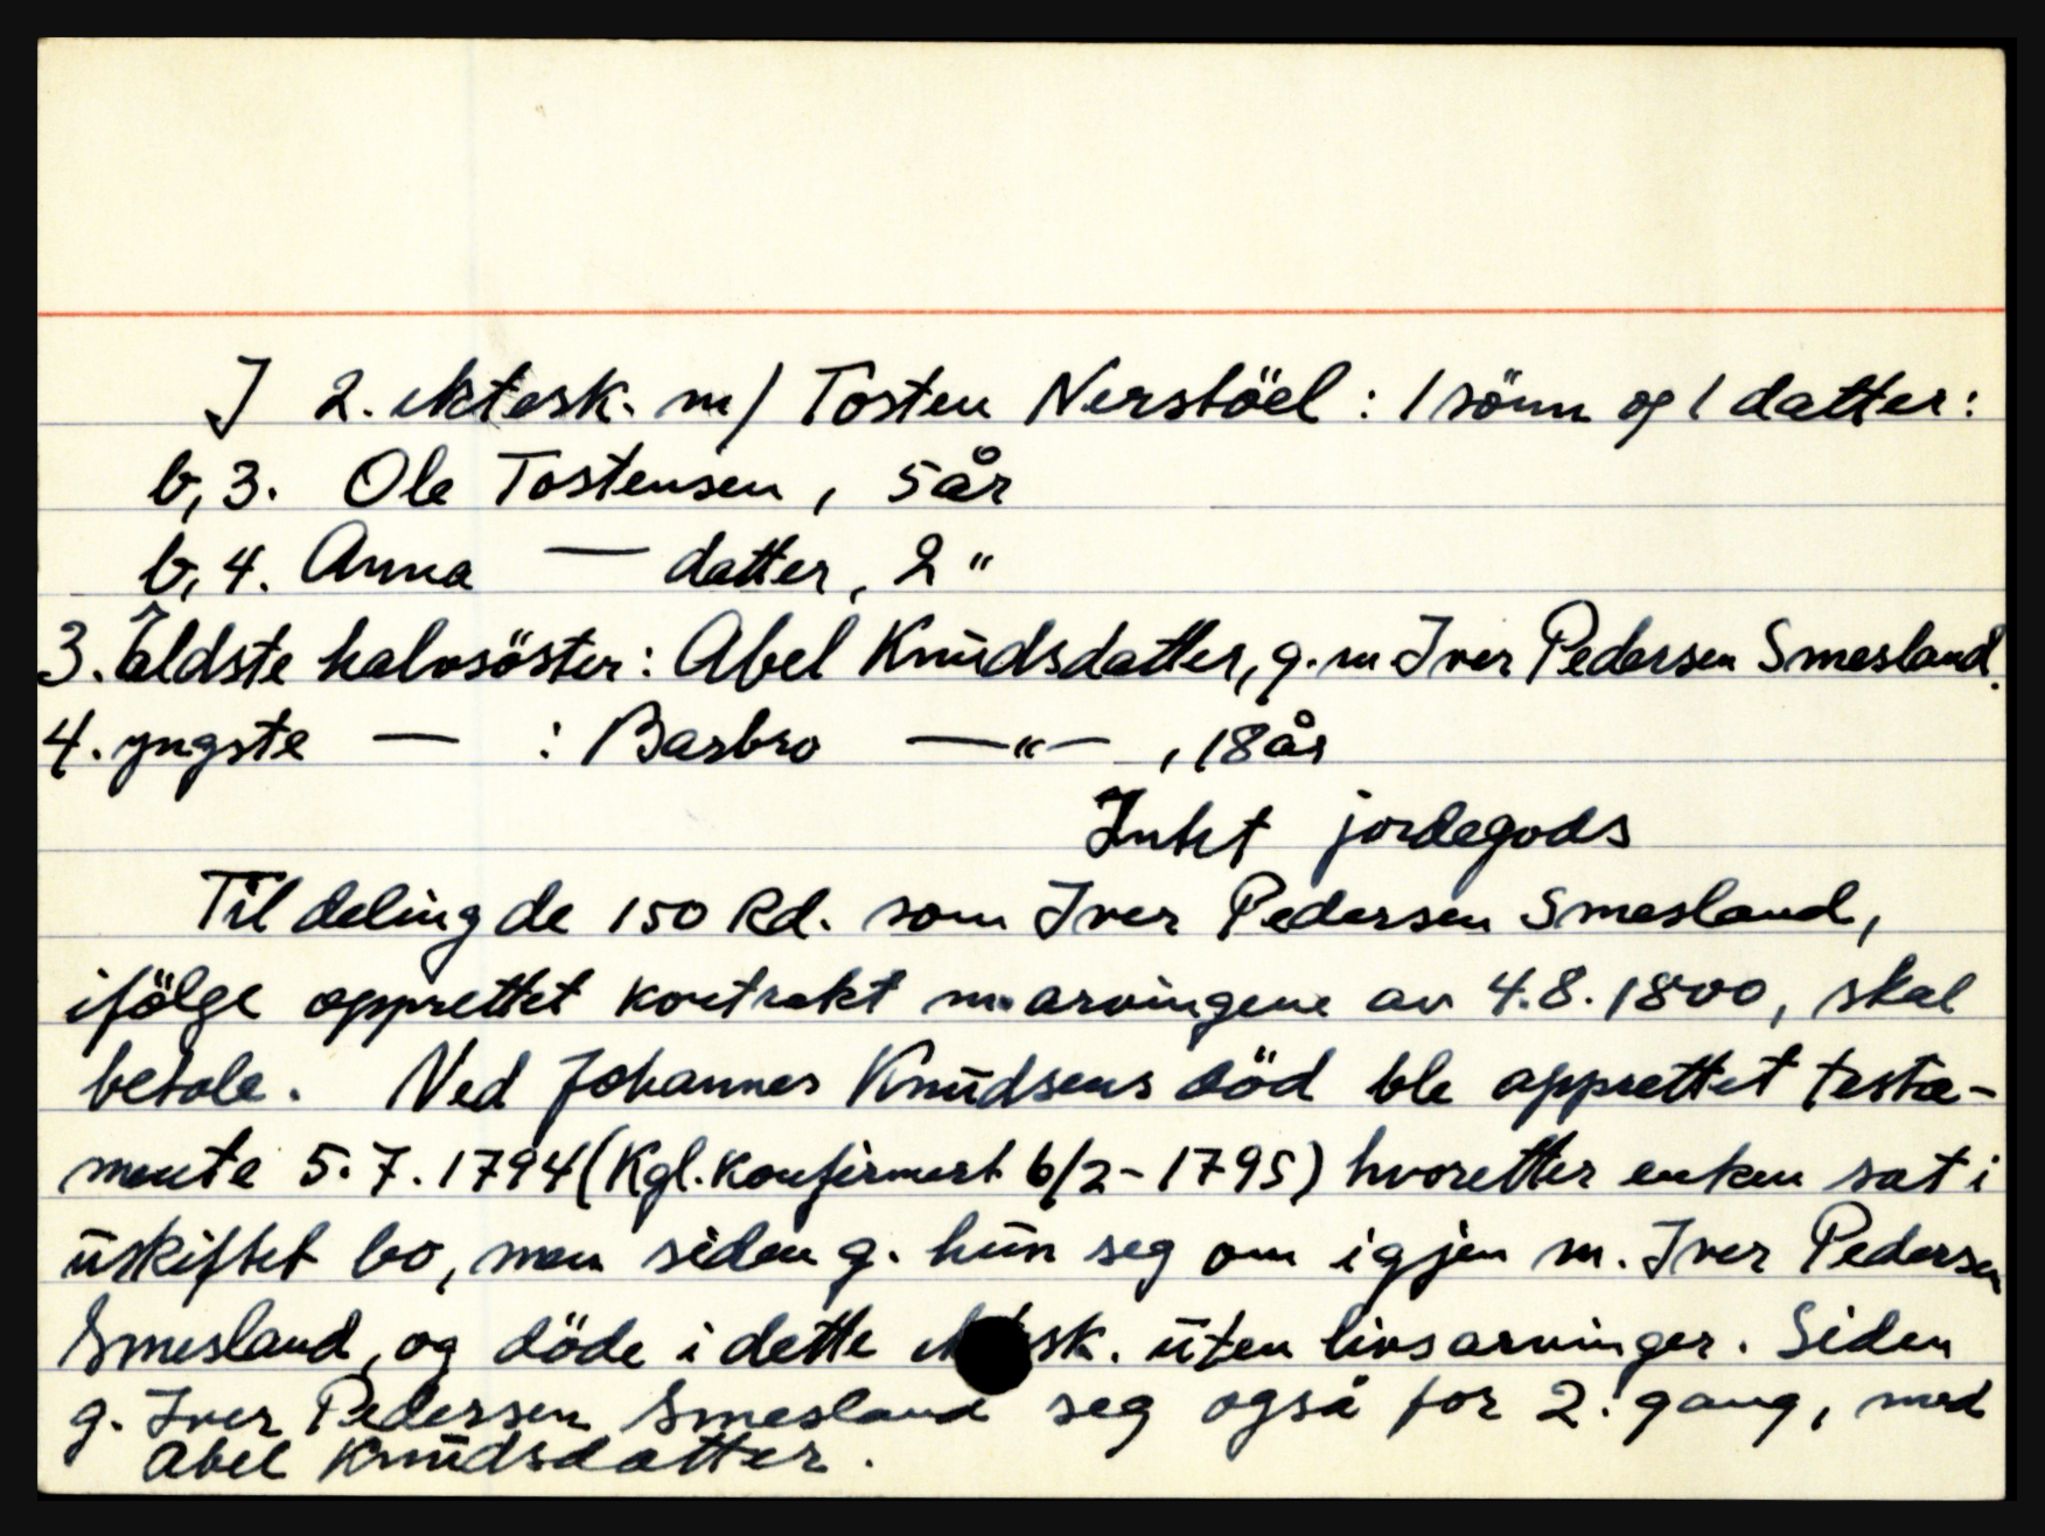 I 2. ektesk. m/ Tosten Nerstöel: 1 sönn og 1 datter:
b,3. Ole Tostensen, 5 år
b,4. Anna — datter, 2 "
3. Eldste halvsöster: Abel Knudsdatter, g.m Iver Pedersen Smesland.
4. yngste — : Barbro —"— , 18 år
Intet jordegods
Til deling de 150 Rd. som Iver Pedersen Smesland,
ifölge opprettet kontrakt m. arvingene av 4.8.1800, skal
betale. Ved Johannes Knudsens död ble opprettet testa-
mente 5.7.1794 (Kgl. konfirmert 6/2-1795) hvoretter enken sat i
uskiftet bo, men siden g. hun seg om igjen m. Iver Pedersen
Smesland, og döde i dette sk. uten livsarvinger. Siden
g. Iver Pedersen Smesland seg også for 2. gang, med
Abel Knudsdatter.